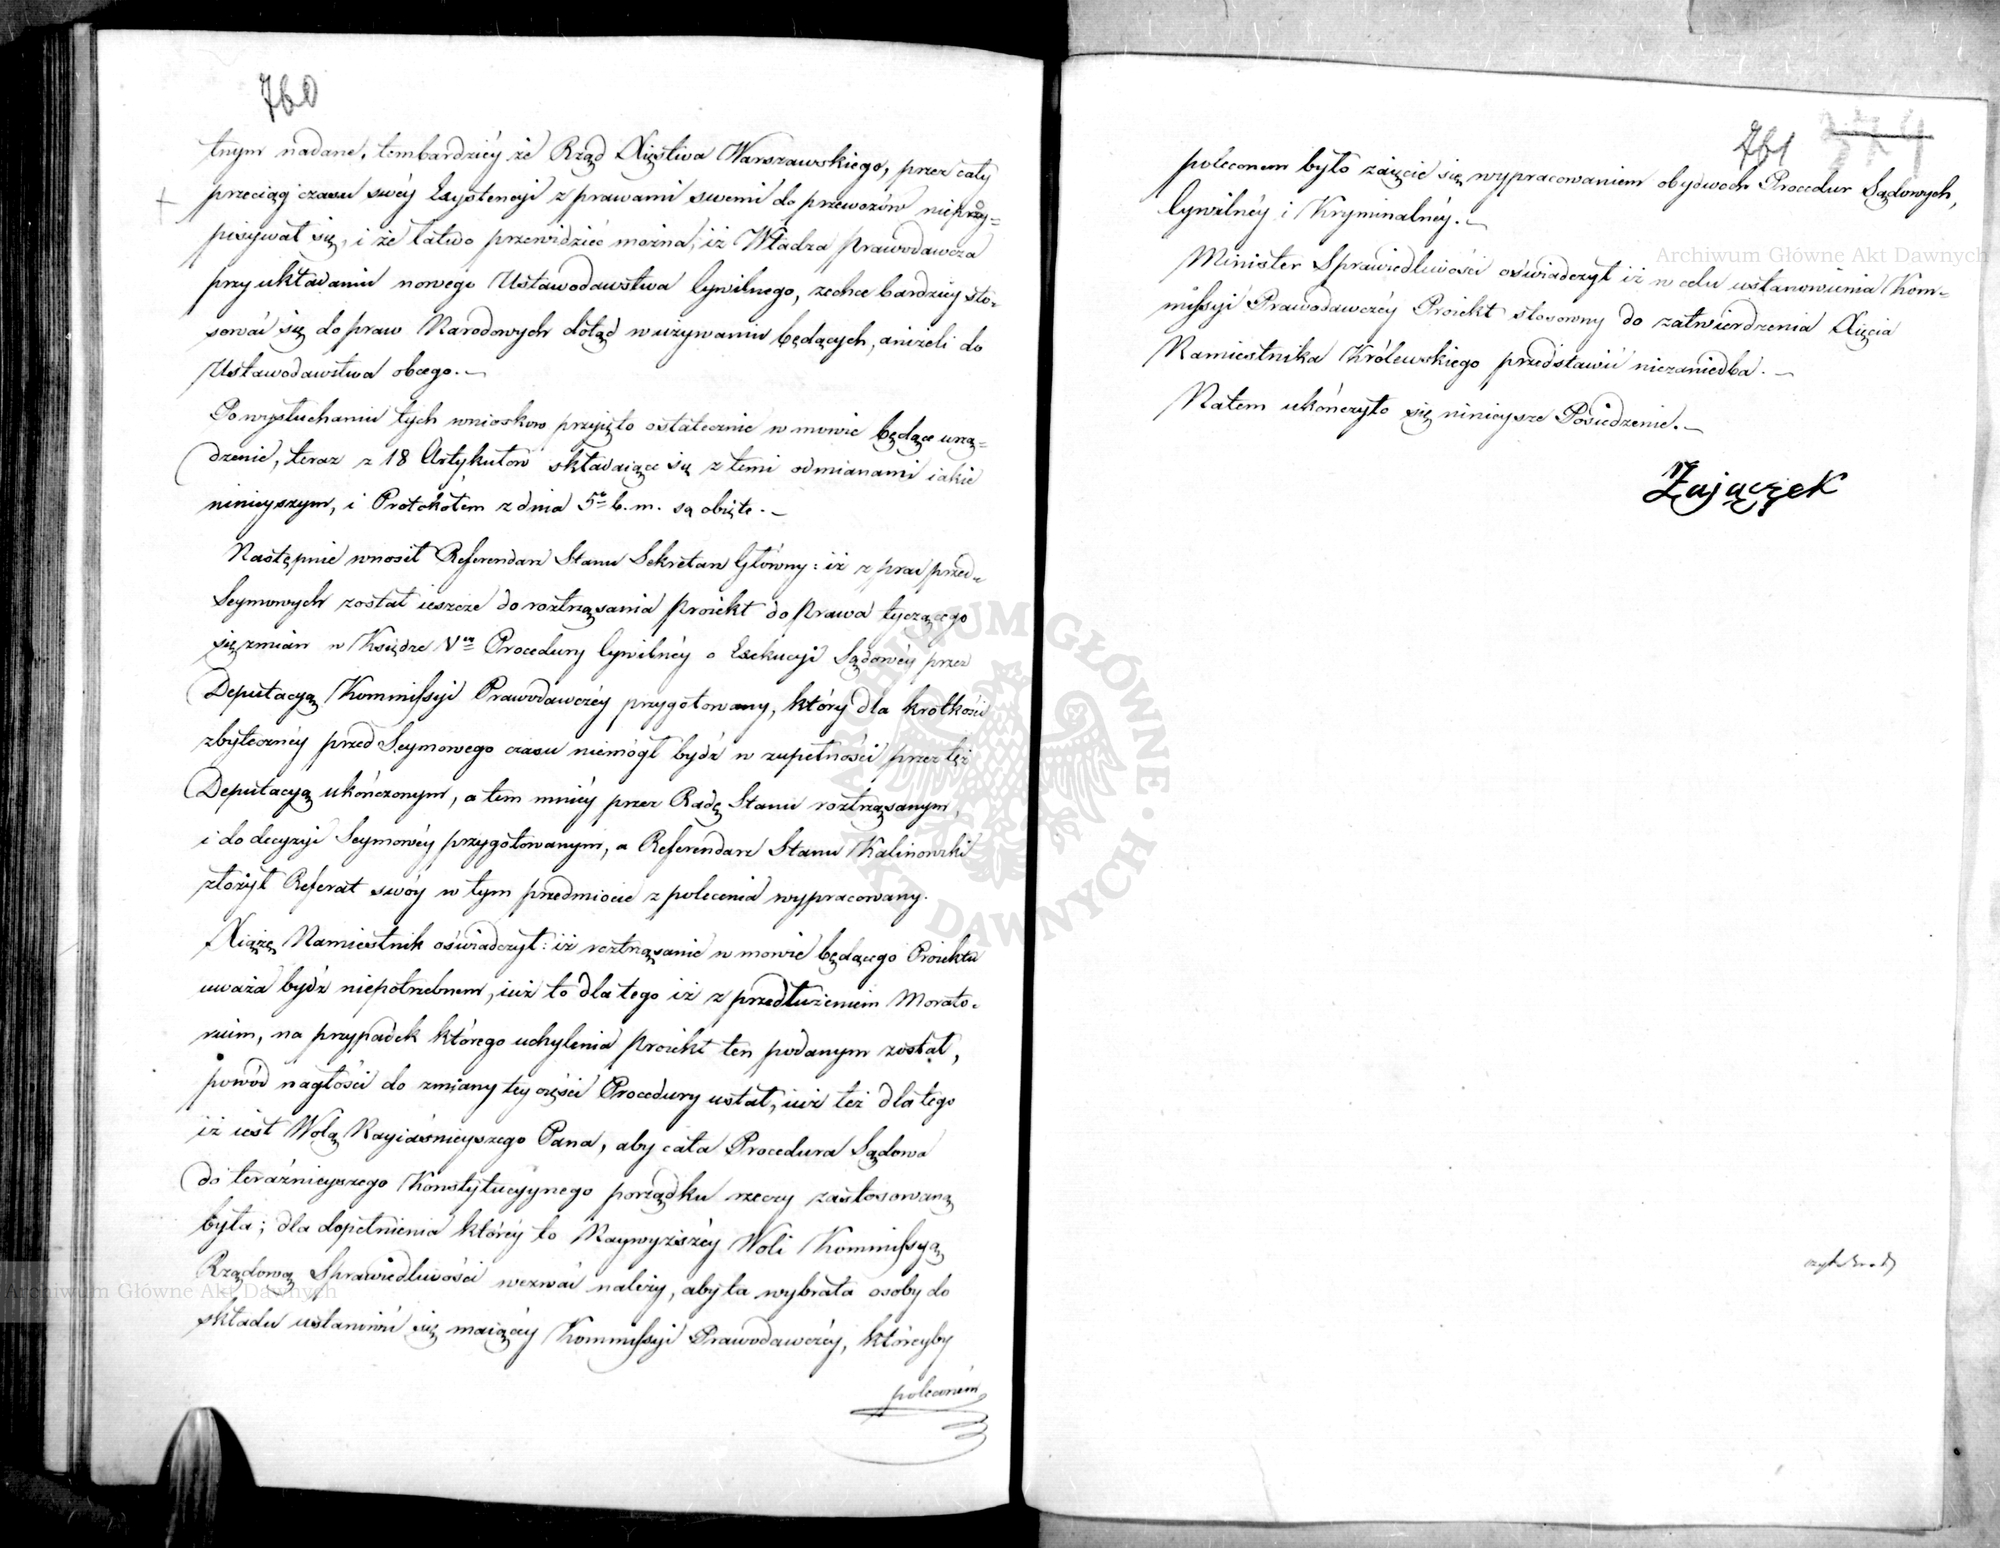 760
tnym nadane, tembardziéy że Rząd Xięstwa Warszawskiego, przez cały
przeciąg czasu swéy Exystencyi z prawami swemi do przewozów nieprzy=
pisywał się, i że łatwo przewidzieć można, iż Władza Prawodawcza
przy układaniu nowego Ustawodawstwa Cywilnego, zechce bardziéy sto=
sować się do praw Narodowych dotąd w używaniu będących, aniżeli do
Ustawodawstwa obcego.—
Po wysłuchaniu tych wniosków przyięto ostatecznie w mowie będące urzą=
dzenie, teraz z 18 Artykułów składaiące się z temi odmianami iakie
ninieyszym, i Protokółem z dnia 5º b. m. są obięte.—
Następnie wnosił Referendarz Stanu Sekretarz Główny: iż z prac przed=
Seymowych został ieszcze do roztrząsania Proiekt do Prawa tyczącego
się zmian w Księdze Vey Procedury Cywilnéy o Exekucyi Sądowéy przez
Deputacyą Kommissyi Prawodawczéy przygotowany, który dla krótkości
zbyteczney przed Seymowego czasu niemógł bydź w zupełności przez też
Deputacyą ukończonym, a tem mniéy przez Radę Stanu roztrząsanym,
i do decyzyi Seymowéy przygotowanym, a Referendarz Stanu Kalinowski
złożył Referat swóy w tym przedmiocie z polecenia wypracowany.
Xiążę Namiestnik oświadczył: iż roztrząsanie w mowie będącego Proiektu
uważa bydź niepotrzebnem, iuż to dla tego iż z przedłużeniem Morato=
rium, na przypadek którego uchylenia Proiekt ten podanym został,
powód nagłości do zmiany tey części Procedury ustał, iuż też dla tego
iż iest Wolą Nayiaśnieyszego Pana, aby cała Procedura Sądowa
do teraźnieyszego Konstytucyynego porządku rzeczy zastosowaną
była; dla dopełnienia któréy to Naywyższéy Woli Kommissyą
Rządową Sprawiedliwości wezwać należy, aby ta wybrała osoby do
składu ustanowić się maiącéy Kommissyi Prawodawczéy, któreyby
poleconém
761
374
poleconem było zaięcie się wypracowaniem obydwoch Procedur Sądowych,
Cywilnéy i Kryminalnéy.—
Minister Sprawiedliwości oświadczył iż w celu ustanowienia Kom=
missyi Prawodawczéy Proiekt stosowny do zatwierdzenia Xięcia
Namiestnika Królewskiego przedstawić niezaniedba.—
Natem ukończyło się ninieysze Posiedzenie.—
Zajączek
Archiwum Główne Akt Dawnych
Archiwum Główne Akt Dawnych
ARCHIWUM GŁÓWNE AKT DAWNYCH